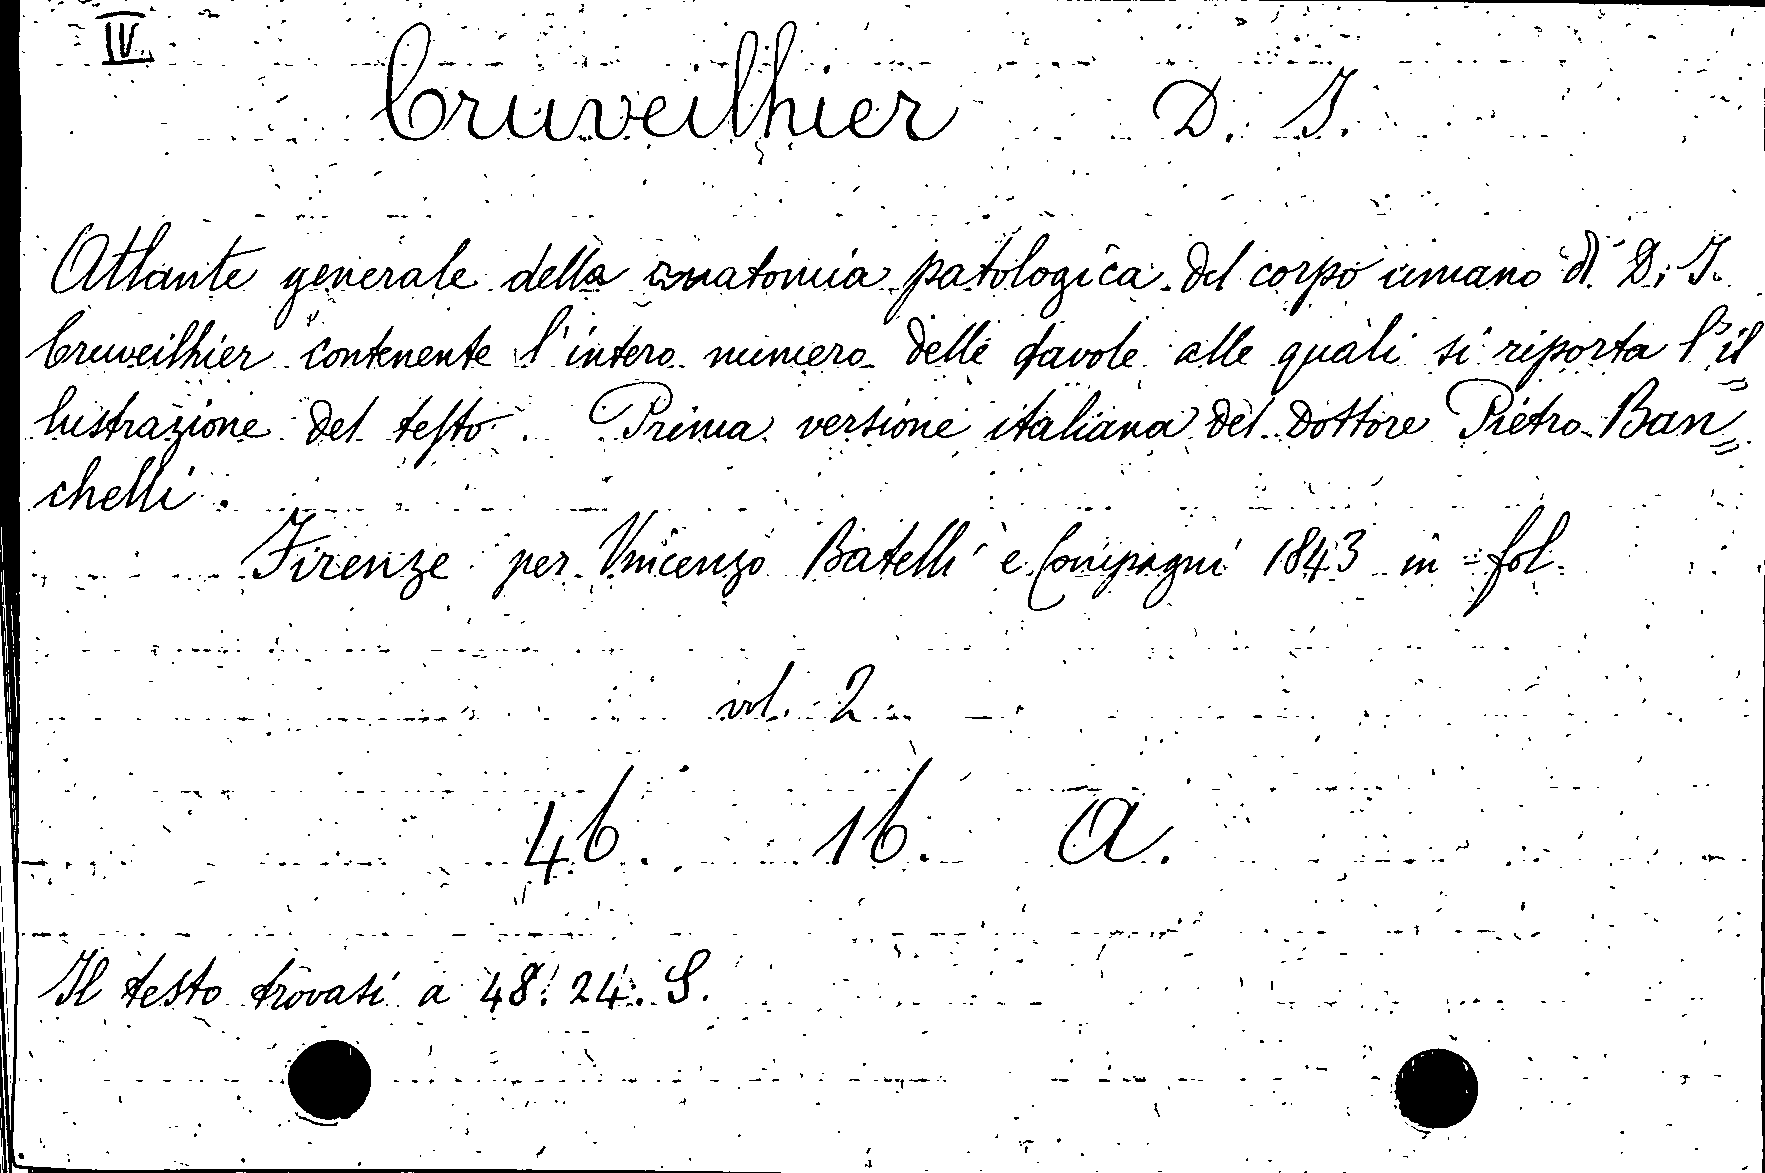 IV
Cruveilhier D. J.
Atlante generale della anatomia patologica del corpo umano di D. J.
Cruveilhier contenente l'intero numero delle tavole alle quali si riporta l'il=
lustrazione del testo. Prima versione italiana del Dottore Pietro Ban=
chelli.
Firenze per Vincenzo Batelli e Compagni 1843 in = fol.
vol. 2
46. 16. A.
Il testo trovasi a 48. 24. S.